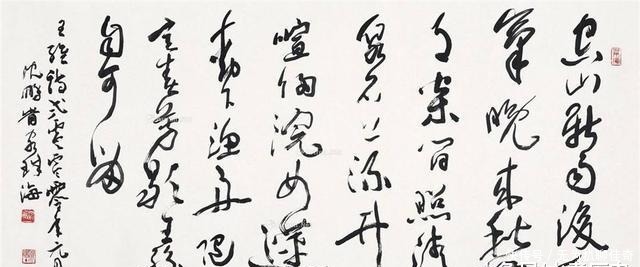 空山新雨後
氣晚来秋
月松間照清
泉石上流竹
喧歸浣女蓮
動下漁舟隨
意春芳歇王孫
自可留
王維詩零年元月
沈鵬書珠海